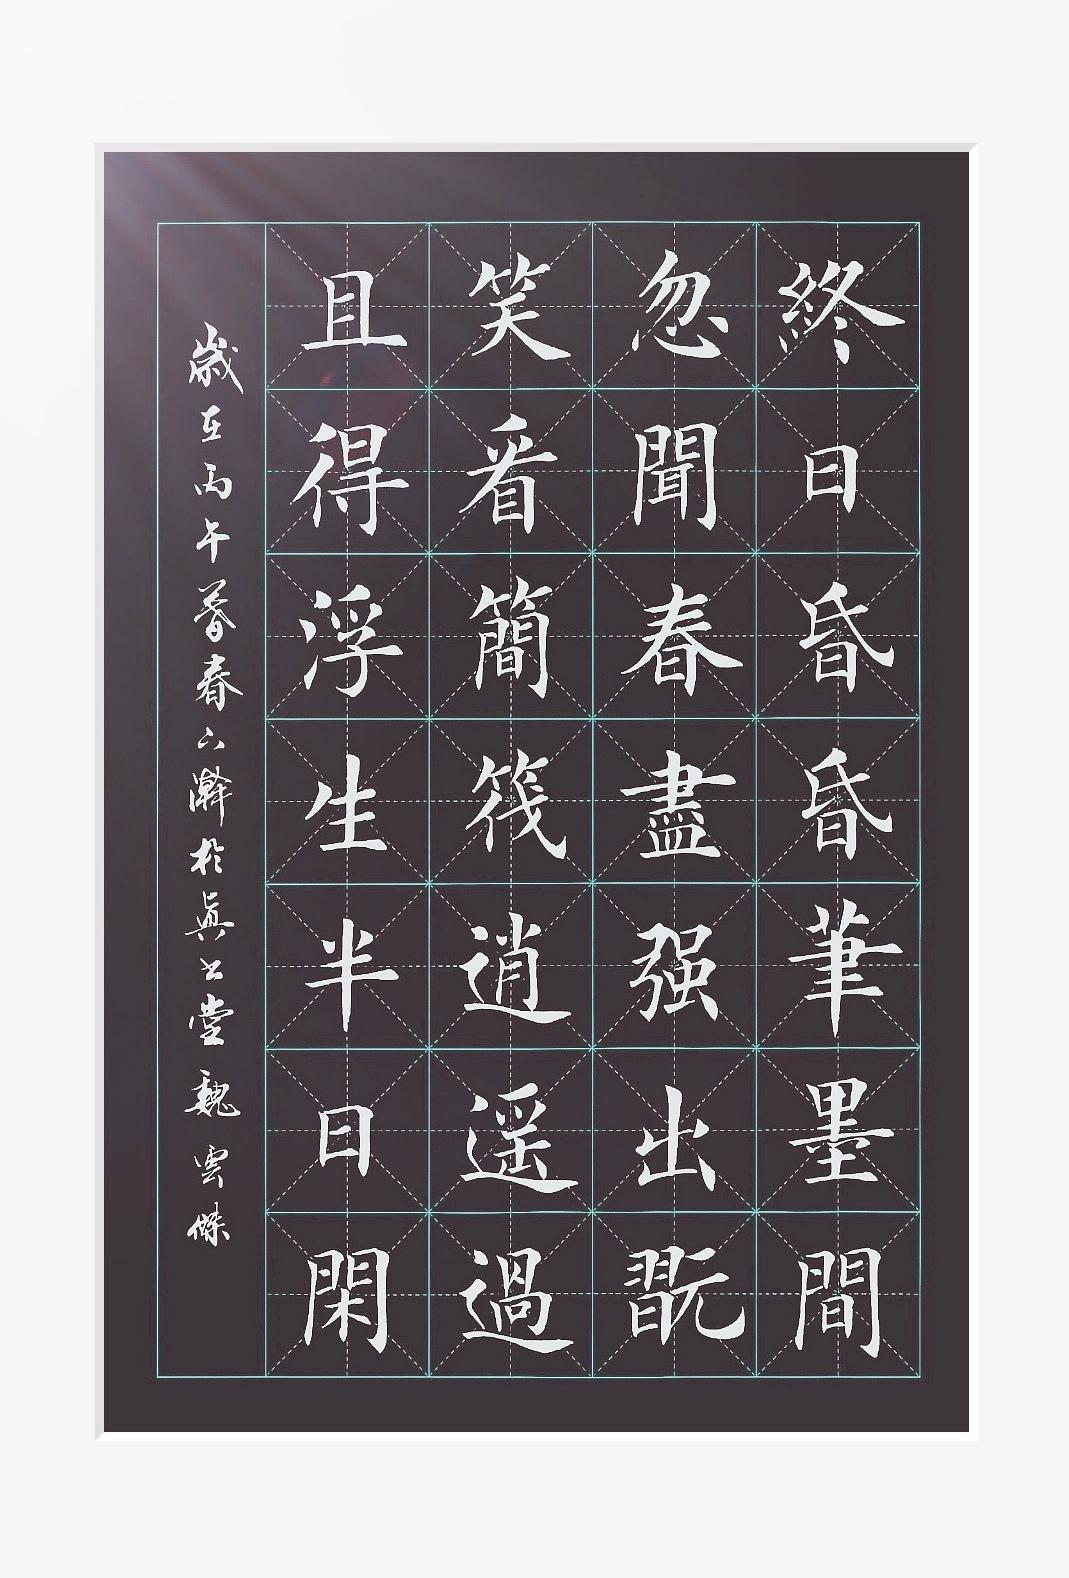 終日昏昏筆墨間
忽聞春盡强出翫
笑看簡筏逍遥過
且得浮生半日閑
歲在丙午暮春下澣於眞堂魏雲傑